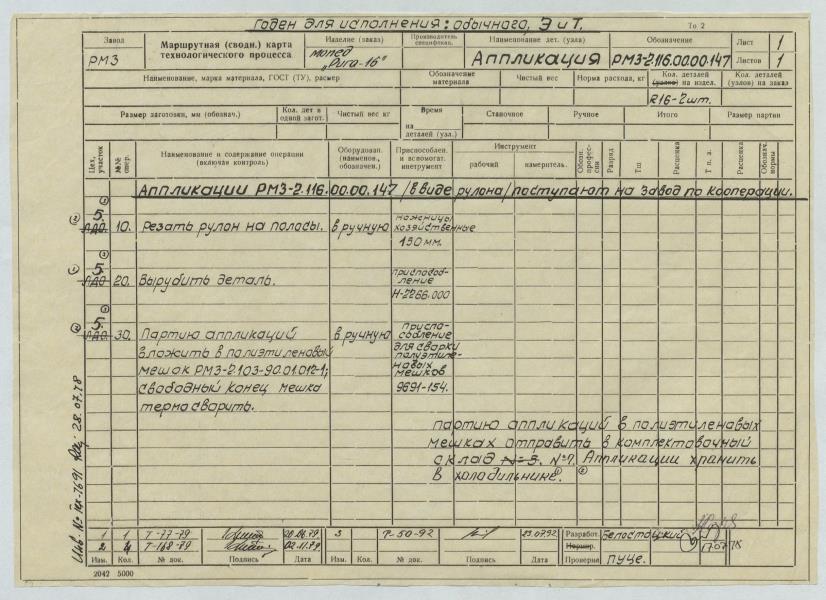 Годен для исполнения: обычного, Э и Т.
То 2
Завод
РМЗ
Маршрутная (сводн.) карта
технологического процесса
Изделие (заказ)
мопед
„Рига-16"
Производитель
специфекац.
Наименование дет. (узла)
Аппликация
Обозначение
РМЗ-2.116.00.00.147
Лист 1
Листов 1
Наименование, марка материала, ГОСТ (ТУ), размер
Обозначение
материала
Чистый вес
Норма расхода, кг
Кол. деталей
(узлов) на издел.
R16-2шт.
Кол. деталей
(узлов) на заказ
Размер заготовки, мм (обознач.)
Кол. дет в
одной загот.
Чистый вес кг
Время
на
деталей (узл.)
Станочное
Ручное
Итого
Размер партии
Цех,
участок
№№
опер.
Наименование и содержание операции
(включая контроль)
Оборудован.
(наименов.,
обозначен.)
Приспособлен.
и вспомогат.
инструмент
Инструмент
рабочий
измеритель.
Обозн.
профес-
сии
Разряд
Тш
Расценка
Т п. з.
Расценка
Обознач.
нормы
Аппликации РМЗ-2.116.00.00.147 /в виде рулона/ поступают на завод по кооперации.
5.
ПДО
10.
Резать рулон на полосы.
вручную
ножницы
хозяйственные
150 мм.
5.
ПДО
20.
Вырубить деталь.
приспособ-
ление
Н-2266.000
5.
ПДО.
30.
Партию аппликаций
вложить в полиэтиленовый
мешок РМЗ-2.103-90.01.012-1;
свободный конец мешка
термосварить.
вручную
приспо-
собление
для сварки
полиэтиле-
новых
мешков
9691-154.
партию аппликаций в полиэтиленовых
мешках отправить в комплектовочный
склад №5. №7. Аппликации хранить
в холодильнике.
Инв. № 7691
28.07.78
1 1 Т-77-79 20.06.79 3 Т-50-92 23.07.92
2 4 Т-168-79 02.11.79
Изм. Кол. № док. Подпись Дата Изм. Кол. № док. Подпись Дата
Разработ. Белостоцкий
Нормир. 17.07.78
Проверил ПУЦЕ.
2042 5000